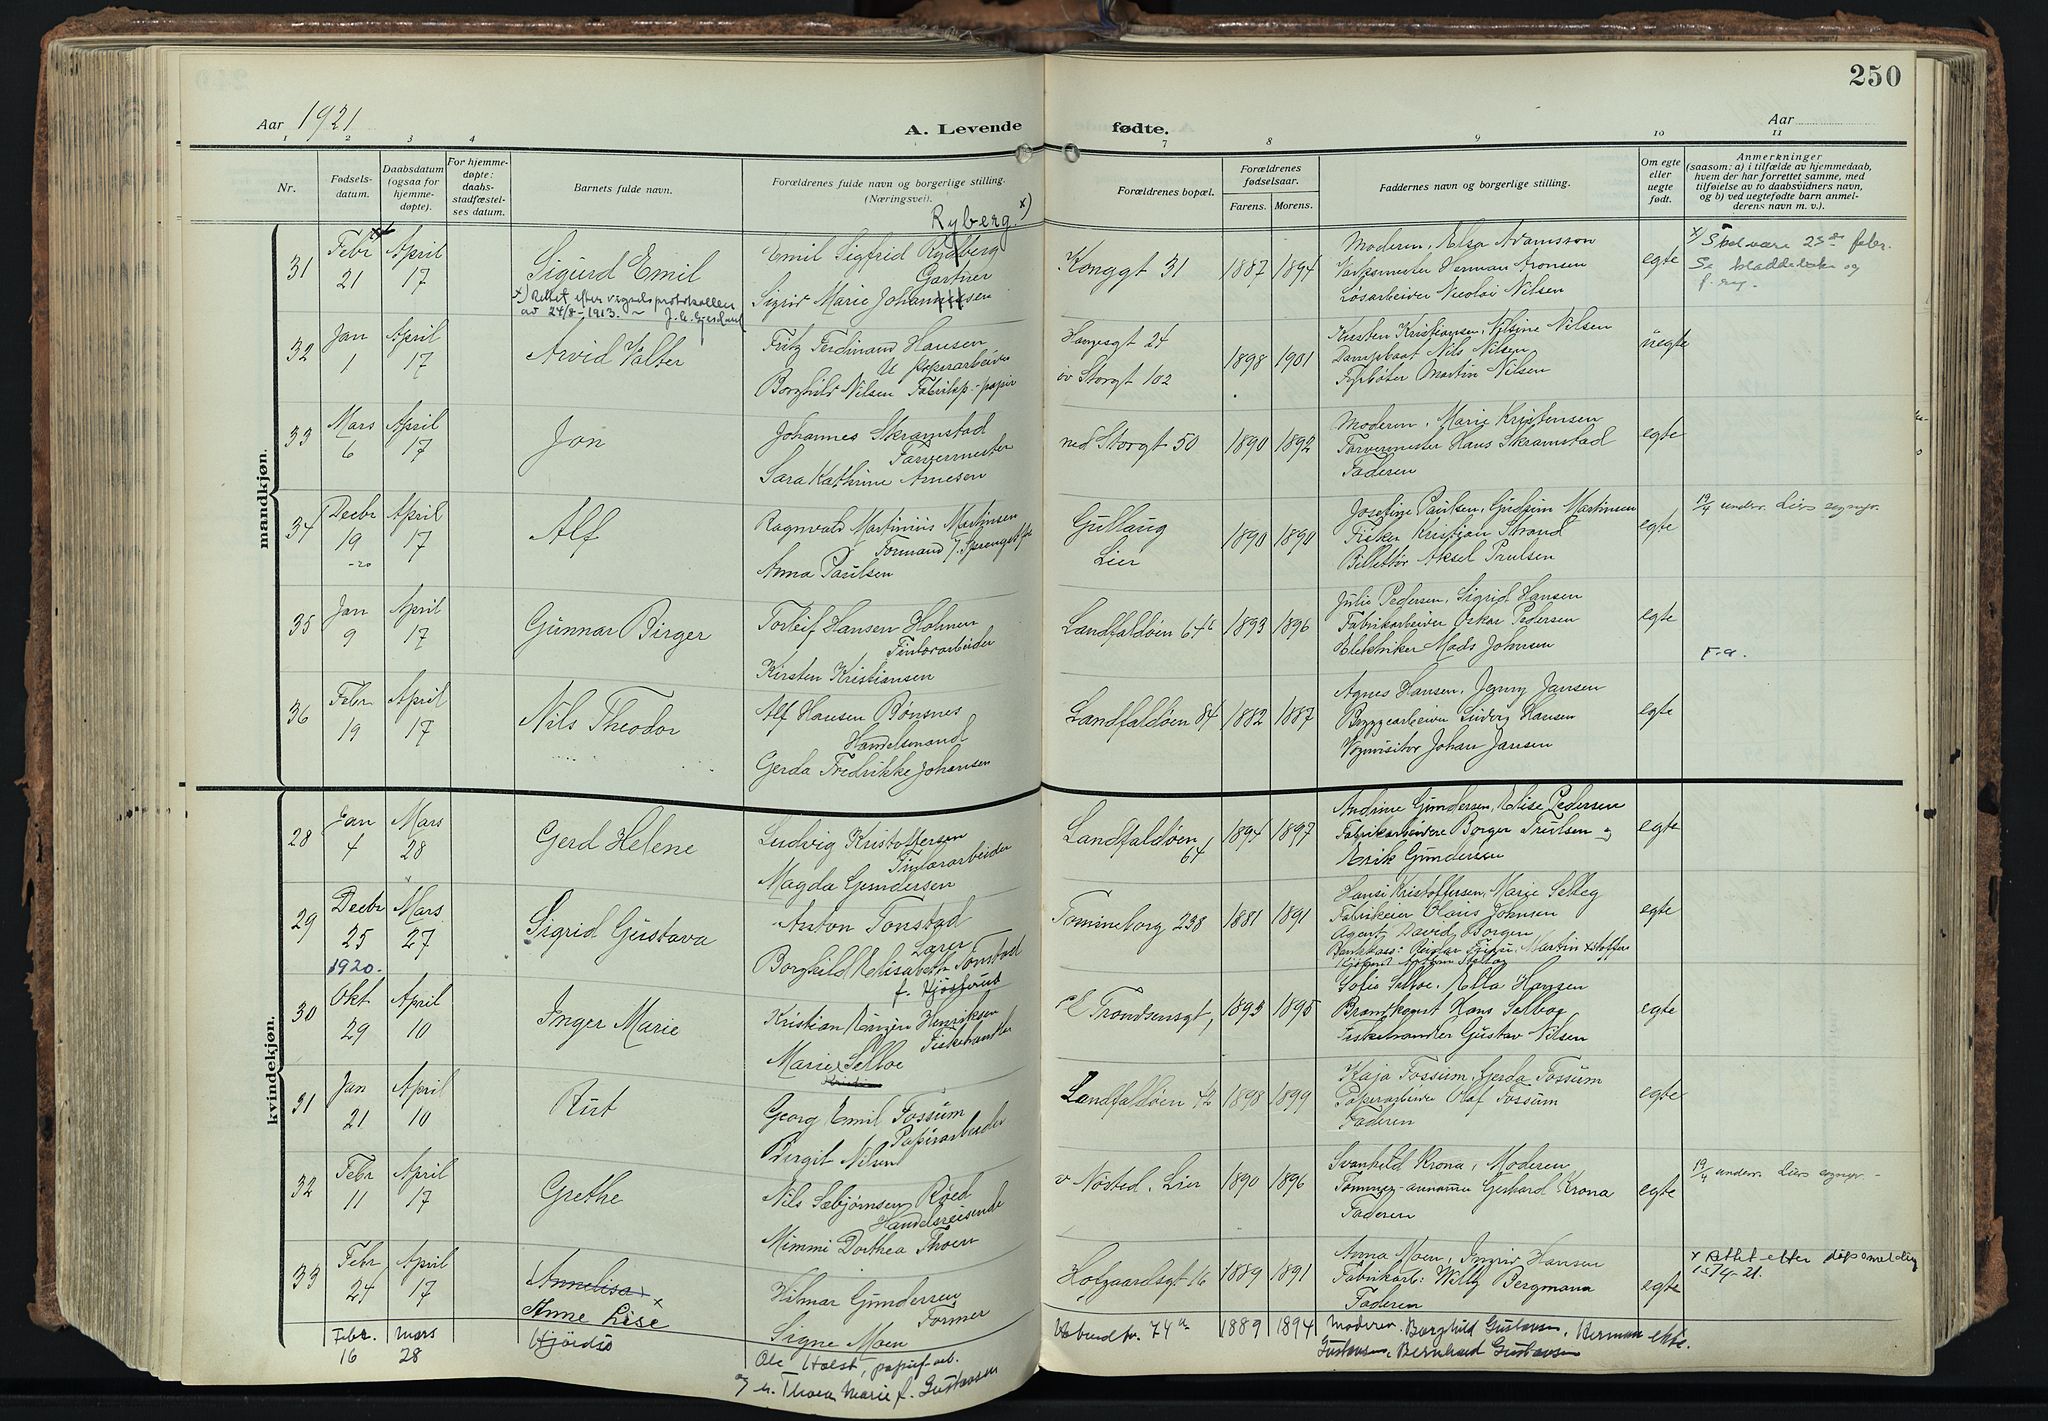 250
Aar 1921
A. Levende fødte.
Aar
1 2 3 4 7 8 9 10 11
Nr.
Fødsels-
datum.
Daabsdatum
(ogsaa for
hjemme-
døpte).
For hjemme-
døpte:
daabs-
stadfæstel-
ses datum.
Barnets fulde navn.
Forældrenes fulde navn og borgerlige stilling.
(Næringsvei).
Forældrenes bopæl.
Forældrenes
fødselsaar.
Farens. Morens.
Faddernes navn og borgerlige stilling.
Om egte
eller
uegte
født.
Anmerkninger
(saasom: a) i tilfælde av hjemmedaab,
hvem der har forrettet samme, med
tilføielse av to daabsvidners navn,
og b) ved uegtefødte barn anmel-
derens navn m. v.).
mandkjøn.
31
Febr
21
April
17
Sigurd Emil
x) Rettet efter vigselsprotokollen
av 24/8-1913.
Ryberg x)
Emil Sigfrid Rydberg
Gartner
Sigrid Marie Johannesen
Konggt 31
1887 1894
Moderen, Elsa Adamsson
Herman Aronsen
Løsarbeider Nicolai Nilsen
egte
x) Skal være 23de febr.
32
Jan
1
April
17
Arvid Valter
Fritz Ferdinand Hansen
papirarbeider
Borghild Nilsen
Havnegt 24
øv Storgt 102
1898 1901
Kirsten Kristiansen, Nilsine Nilsen
Nils Nilsen
Fyrbøter Martin Nilsen
uegte
33
Mars
6
April
17
Jon
Johannes Skramstad
Farvermester
Sara Kathrine Arnesen
ned Storgt 50
1890 1892
Moderen, Marie Kristensen
Farvermester Hans Skramstad
Faderen
egte
34
Decbr
19
-20
April
17
Alf
Ragnvald Martinius Martinsen
Formand
Anna Paulsen
Gullaug
Lier
1890 1890
Josefine Paulsen, Gudrun Martinsen
Fisker Kristian Strand
Billettør Aksel Paulsen
egte
19/4 underr. Liers sognepr.
35
Jan
9
April
17
Gunnar Birger
Torleif Hansen Holmen
Kirsten Kristiansen
Landfaldøien 64
1893 1896
Julie Pedersen, Sigrid Hansen
Fabrikarbeider Oskar Pedersen
Elektriker Mads Johnsen
egte
F.a.
36
Febr
19
April
17
Nils Theodor
Alf Hansen Bønsnes
Handelsmand
Gerda Fredrikke Johansen
Landfaldøien 84
1882 1887
Agnes Hansen, Jenny Jansen
Byggearbeider Ludvig Hansen
Vognvisitør Johan Jansen
egte
kvindekjøn.
28
Jan
4
Mars
28
Gerd Helene
Ludvig Kristoffersen
Magda Gundersen
Landfaldøien
64
1894 1897
Andrine Gundersen, Elise Pedersen
Fabrikarbeidere Borger Trulsen og
Erik Gundersen
egte
29
Decbr
25
1920.
Mars
27
Sigrid Gustava
Anton Tonstad
Lærer
Borghild Elisabeth Tonstad
Tomineborg 238
1881 1891
Hansi Kristoffersen, Marie Selleg
Olaus Johnsen
Agent David Borgen
egte
30
Okt
29
April
10
Inger Marie
Kristian Henriksen
Fiskehandler
Marie Selboe
E Trondsensgt,
1893 1895
Sofie Selboe, Ella Hansen
Brandkonst Hans Selboe
Fiskehandler Gustav Nilsen
egte
31
Jan
21
April
10
Rut
Georg Emil Fossum
Papirarbeider
Birgit Nilsen
Landfaldøien 42
1898 1899
Kaja Fossum, Gerda Fossum
Papirarbeider Olaf Fossum
Faderen
egte
32
Febr
11
April
17
Grethe
Nils Sæbjørnsen Røed
Handelsreisende
Mimmi Dorthea Thoen
v Nøsted, Lier
1890 1896
Svanhild Krona, Moderen
Gerhard Krona
Faderen
egte
19/4 underr. Liers sognepr.
33
Febr
24
April
17
Annelisa x
Anne Lise
Hilmar Gundersen
Former
Signe Moen
Holgaardsgt 16
1889 1891
Anna Moen, Ingrid Hansen
Fabrikarb: Willy Bergmann
Faderen
egte
x Rettet efter
15/4-21.
Febr.
16
Mars
28
Hjørdis
Ole Holst, papirarb.
og h. Thora Marie f. Gustavsen
74a
1889 1894
Moderen, Borghild Gustavsen, Herman
Gustavsen, Bernhard Gustavsen
ekte.